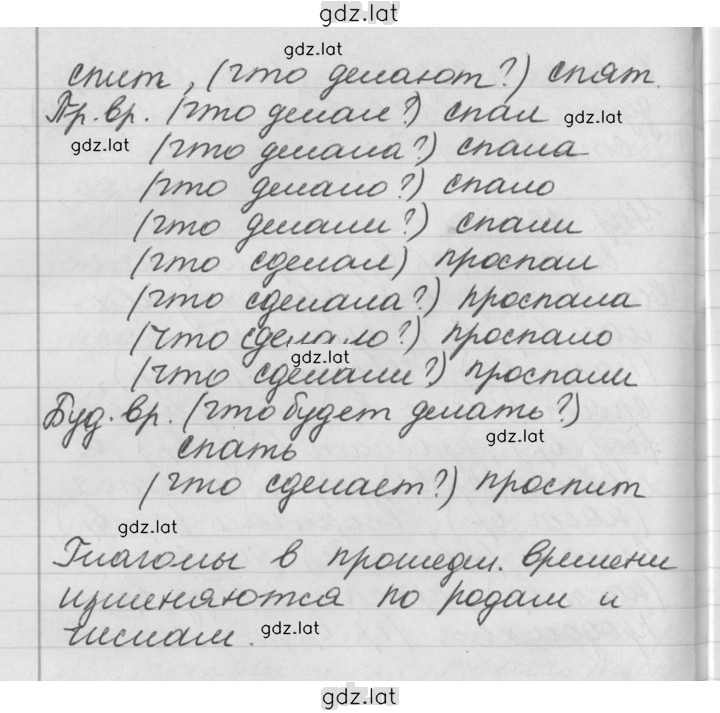 gdz.lat
gdz.lat
спит, (что делают?) спят.
Пр. вр. (что делал?) спал gdz.lat
gdz.lat (что делала?) спала
(что делало?) спало
(что делали?) спали
(что сделал) проспал
(что сделала?) проспала
(что сделало?) проспало
gdz.lat
(что сделали?) проспали
Буд. вр. (что будет делать?)
спать gdz.lat
(что сделает?) проспит
gdz.lat
Глаголы в прошедш. времени
изменяются по родам и
числам. gdz.lat
gdz.lat